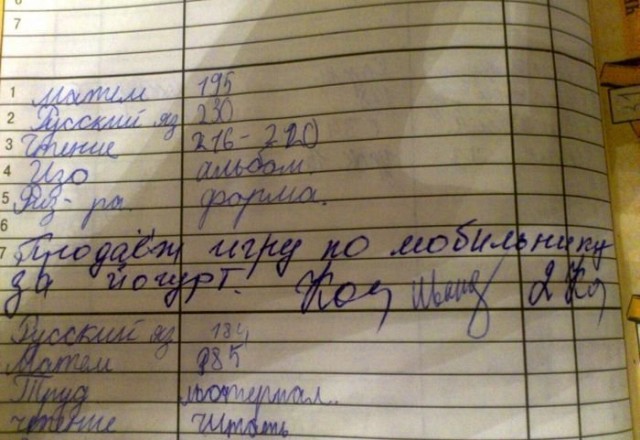 7
1 матем 195
2 Русский яз 230
3 Чтение 216-220
4 Изо альбом.
5 Физ-ра. форма.
6
7 Продаёт игру по мобильнику
за йогурт. 2
Русский яз 184
Матем 985
Труд материал.
чтение читать